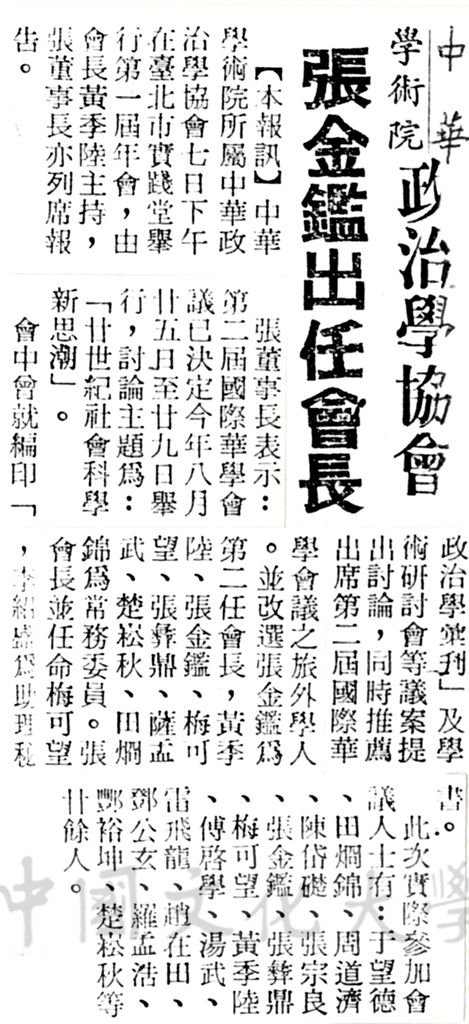 中華
學術院
政治學協會
張金鑑出任會長
【本報訊】中華
學術院所屬中華政
治學協會七日下午
在臺北市實踐堂舉
行第一屆年會，由
會長黃季陸主持，
張董事長亦列席報
告。
張董事長表示：
第二屆國際華學會
議已決定今年八月
廿五日至廿九日舉
行，討論主題爲：
「廿世紀社會科學
新思潮」。
會中曾就編印「
政治學彙刊」及學
術硏討會等議案提
出討論，同時推薦
出席第二屆國際華
學會議之旅外學人
。並改選張金鑑爲
第二任會長，黃季
陸、張金鑑、梅可
望、張彝鼎、薩孟
武、楚崧秋、田烱
錦爲常務委員。張
會長並任命梅可望
，李紹盛爲助理秘
書。
此次實際參加會
議人士有：于望德
、田烱錦、周道濟
、陳岱礎、張宗良
、張金鑑、張彝鼎
、梅可望、黃季陸
、傅啓學、湯武、
雷飛龍、趙在田、
鄧公玄、羅孟浩、
酆裕坤、楚崧秋等
廿餘人。
中國文化大學